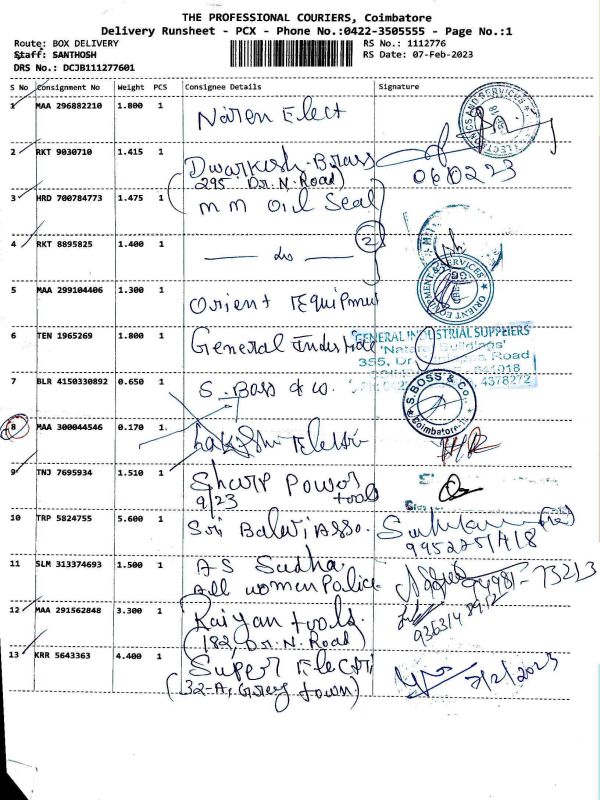 THE PROFESSIONAL COURIERS, Coimbatore
Delivery Runsheet - PCX - Phone No.:0422-3505555 - Page No.:1
Route: BOX DELIVERY
RS No.: 1112776
Staff: SANTHOSH
RS Date: 07-Feb-2023
DRS No.: DCJB111277601
S No Consignment No Weight PCS Consignee Details Signature
1 MAA 296882210 1.800 1 Naren Elect
2 RKT 9030710 1.415 1 Dwarkesh Brass
295 Dr. N. Road) 060223
3 HRD 700784773 1.475 1 MM Oil Seal
2
4 RKT 8895825 1.400 1 — do —
5 MAA 299104406 1.300 1 Orient Equipment
ORIENT EQUIPMENT & SERVICES
6 TEN 1965269 1.800 1 General Industrial
GENERAL INDUSTRIAL SUPPLIERS
355, Dr Road
641018
4378272
7 BLR 4150330892 0.650 1 S. Boss & co.
S.BOSS & Co.,
Coimbatore
8 MAA 300044546 0.170 1 Lakshmi Electri
9 TNJ 7695934 1.510 1 Sharp Power
9/23 tools
10 TRP 5824755 5.600 1 Sri Balaji Asso.
11 SLM 313374693 1.500 1 AS Sudha
All women Police
12 MAA 291562848 3.300 1 Kaiyan tools
(182, Dr. N. Road)
13 KRR 5643363 4.400 1 Super Electri
(32-A, Grey town) 7/2/2023